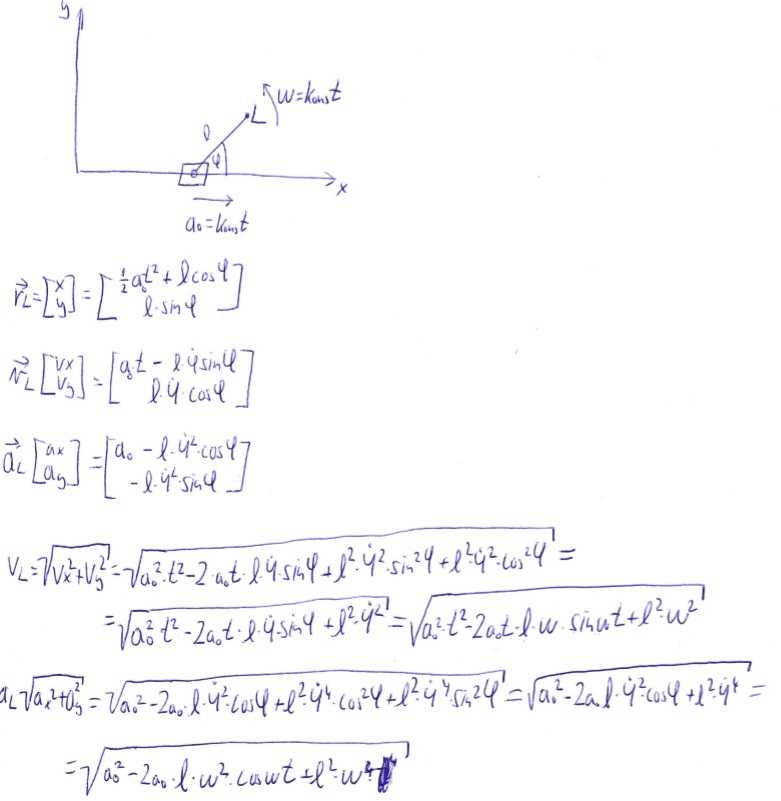 y
ω=konst
L
l
φ
x
a₀=konst
r⃗_L=[x y]=[½a₀t²+l cosφ l·sinφ]
v⃗_L[vx vy]=[a₀t - l·φ̇ sinφ l·φ̇·cosφ]
a⃗_L[ax ay]=[a₀ - l·φ̇²·cosφ -l·φ̇²·sinφ]
v_L=√(vx²+vy²)=√(a₀²·t²-2·a₀t·l·φ̇·sinφ+l²·φ̇²·sin²φ+l²·φ̇²·cos²φ)=
=√(a₀²·t²-2a₀t·l·φ̇·sinφ+l²·φ̇²)=√(a₀²·t²-2a₀t·l·ω·sinωt+l²·ω²)
a_L√(ax²+ay²)=√(a₀²-2a₀·l·φ̇²·cosφ+l²·φ̇⁴·cos²φ+l²·φ̇⁴sin²φ)=√(a₀²-2a₀l·φ̇²cosφ+l²·φ̇⁴)=
=√(a₀²-2a₀·l·ω²·cosωt+l²·ω⁴)